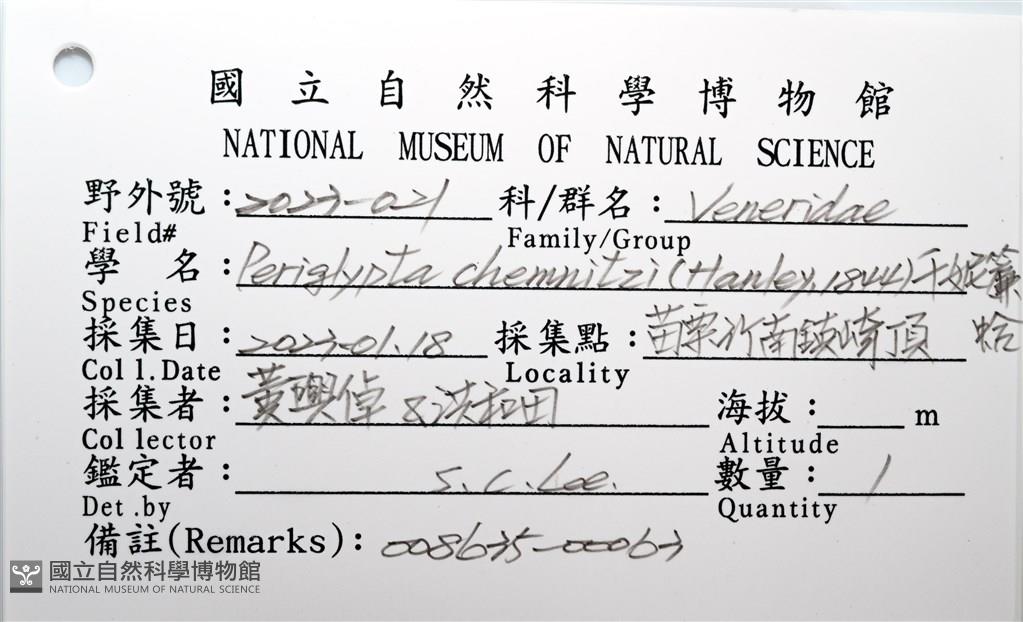 國立自然科學博物館
NATIONAL MUSEUM OF NATURAL SCIENCE
野外號：2023-021 科/群名：Veneridae
Field# Family/Group
學名：Periglypta chemnitzi (Hanley, 1844) 千姬簾蛤
Species
採集日：2023-01.18 採集點：苗栗竹南鎮崎頂
Coll.Date Locality
採集者：黃興倬 & 洪和田 海拔：m
Collector Altitude
鑑定者：S.C.Lee. 數量：1
Det.by Quantity
備註(Remarks)：008635-00063
國立自然科學博物館
NATIONAL MUSEUM OF NATURAL SCIENCE